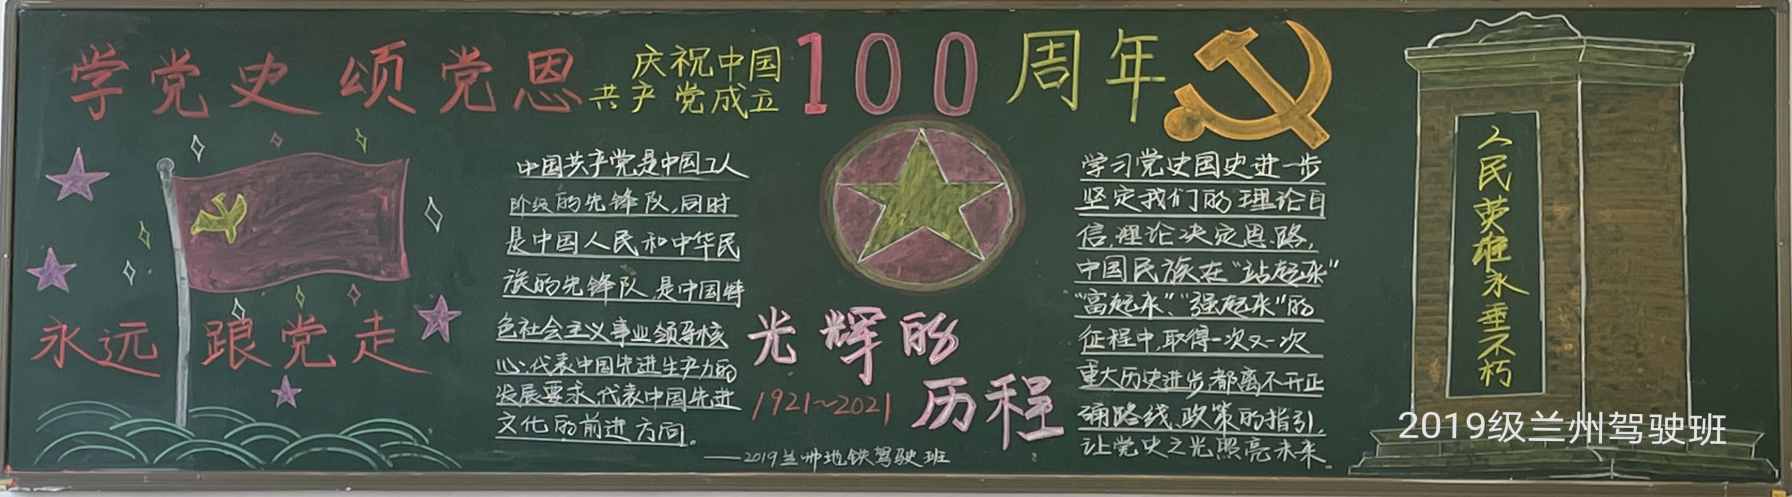 学党史 颂党恩
庆祝中国
共产党成立
100周年
永远跟党走
中国共产党是中国工人
阶级的先锋队,同时
是中国人民和中华民
族的先锋队,是中国特
色社会主义事业领导核
心:代表中国先进生产力的
发展要求,代表中国先进
文化的前进方向。
光辉的
历程
1921~2021
——2019兰州地铁驾驶班
学习党史国史进一步
坚定我们的理论自
信,理论决定思路,
中国民族在“站起来”
“富起来”、“强起来”的
征程中,取得一次又一次
重大历史进步,都离不开正
确路线政策的指引,
让党史之光照亮未来。
人民英雄永垂不朽
2019级兰州驾驶班